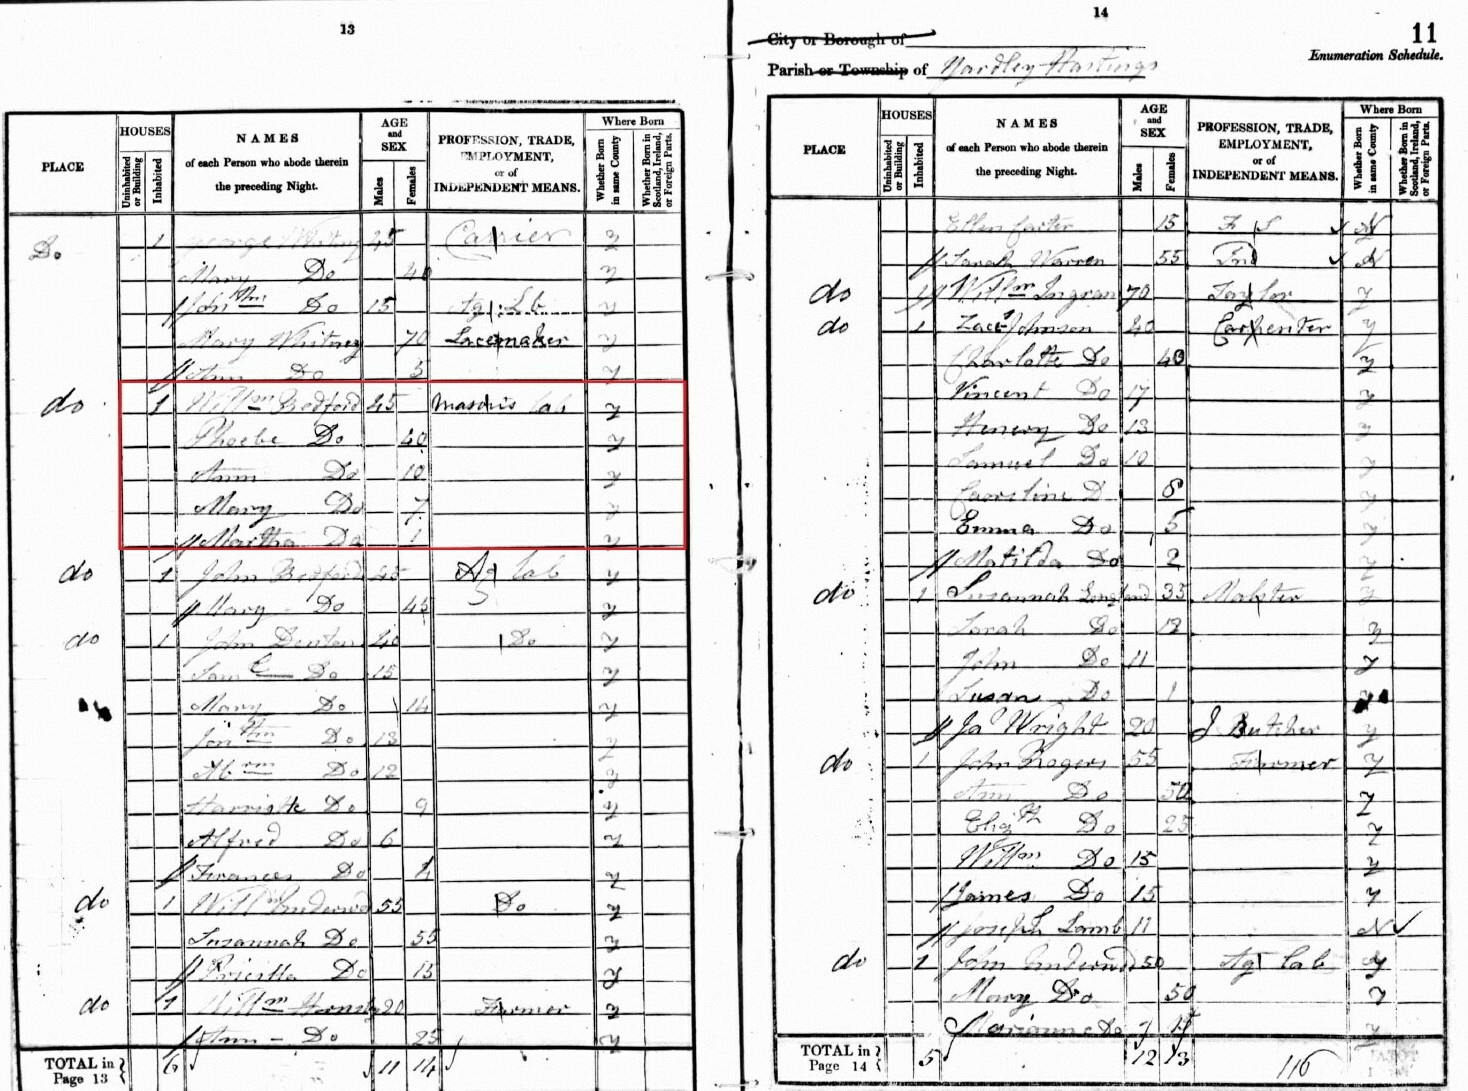 13
PLACE HOUSES Uninhabited or Building Inhabited NAMES of each Person who abode therein the preceding Night. AGE and SEX Males Females PROFESSION, TRADE, EMPLOYMENT, or of INDEPENDENT MEANS. Where Born Whether Born in same County Whether Born in Scotland, Ireland, or Foreign Parts.
Do 1 George Whitney 45 Carrier y
Mary Do 40 y
Jonthn Do 15 Ag. Lb y
Mary Whitney 70 Lacemaker y
Ann Do 5 y
do 1 Willm Bedford 45 Masons lab y
Phoebe Do 40 y
Ann Do 10 y
Mary Do 7 y
Martha Do 1 y
do 1 John Bedford 45 Ag lab y
Mary Do 45 y
do 1 John Denton 40 Do y
Saml Do 15 y
Mary Do 14 y
Jonthn Do 13 y
Abrm Do 12 y
Harriett Do 9 y
Alfred Do 6 y
Frances Do y
do 1 Willm Underwd 55 Do y
Susannah Do 55 y
Pricilla Do 15 y
do 1 Willm 20 Farmer y
Ann - Do 25 y
TOTAL in Page 13 } 6 11 14
14
11
City or Borough of
Enumeration Schedule.
Parish or Township of Yardley Hastings
PLACE HOUSES Uninhabited or Building Inhabited NAMES of each Person who abode therein the preceding Night. AGE and SEX Males Females PROFESSION, TRADE, EMPLOYMENT, or of INDEPENDENT MEANS. Where Born Whether Born in same County Whether Born in Scotland, Ireland, or Foreign Parts.
Ellen 15 F S N
Sarah Warren 55 Ind N
do 1 Willm Ingram 70 Taylor y
do 1 Johnson 40 Carpenter y
Charlotte Do 40 y
Vincent Do 17 y
Henery Do 13 y
Samuel Do 10 y
Caroline D 8 y
Emma Do 5 y
Matilda Do 2 y
do 1 Susannah 35 Malster y
Sarah Do 12 y
John Do 11 y
Susan Do 1 y
Ja Wright 20 J Butcher y
do 1 John Rogers 55 Farmer y
Ann Do 50 y
Elizth Do 25 y
Willm Do 15 y
James Do 15 y
Joseph Lamb 11 N
do 1 John Underwd 50 Ag lab y
Mary Do 50 y
Marianne Do y
TOTAL in Page 14 } 5 12 13 116